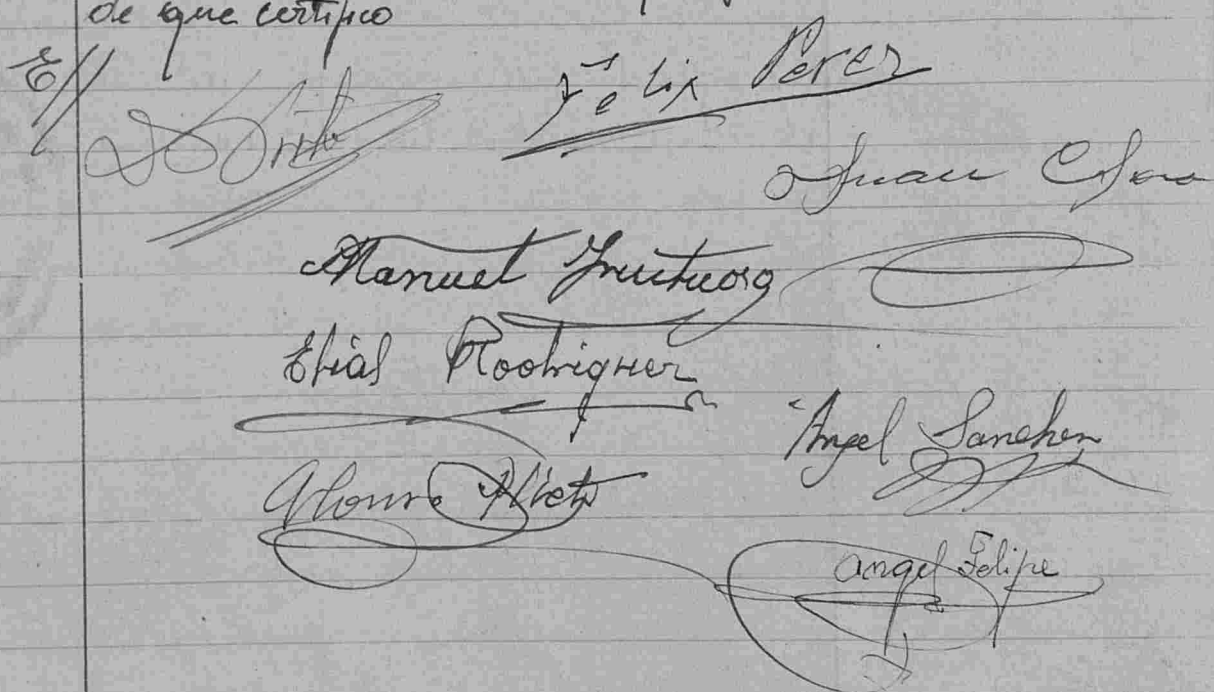 de que certifico
Felix Perez
Juan
Manuel Fructuoso
Elias Rodriguez
Angel Sanchez
Alonso Nieto
Angel Felipe